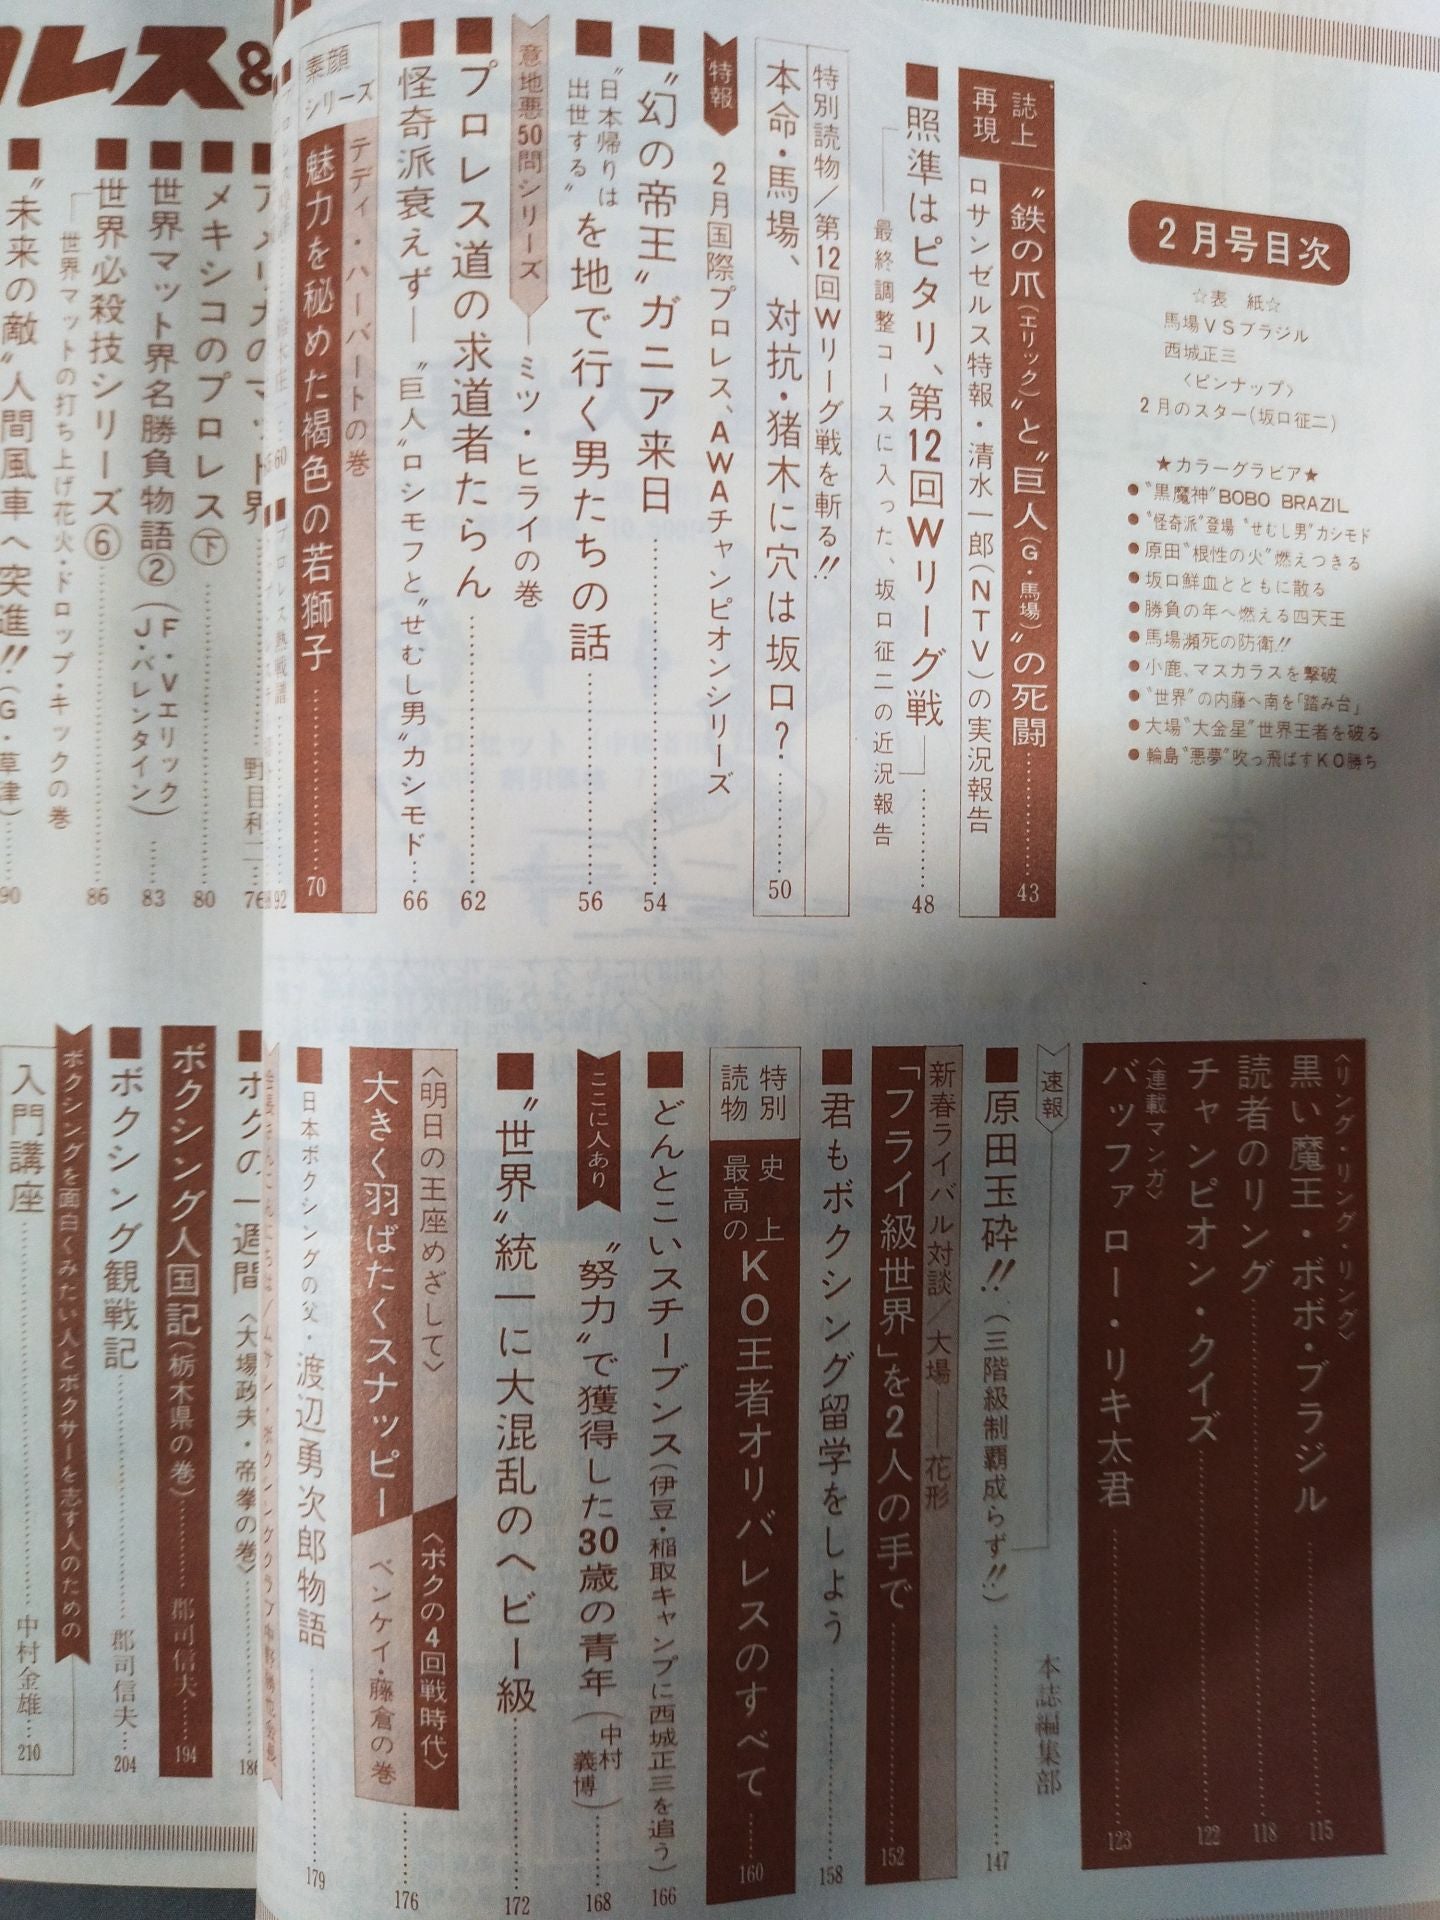 2月号目次
☆表 紙☆
馬場VSブラジル
西城正三
〈ピンナップ〉
2月のスター(坂口征二)
★カラーグラビア★
●〝黒魔神〟BOBO BRAZIL
●〝怪奇派〟登場〝せむし男〟カシモド
●原田〝根性の火〟燃えつきる
●坂口鮮血とともに散る
●勝負の年へ燃える四天王
●馬場瀕死の防衛!!
●小鹿、マスカラスを撃破
●〝世界〟の内藤へ南を「踏み台」
●大場〝大金星〟世界王者を破る
●輪島〝悪夢〟吹っ飛ばすKO勝ち
誌上再現
〝鉄の爪(エリック)〟と〝巨人(G・馬場)〟の死闘……43
ロサンゼルス特報・清水一郎(NTV)の実況報告
■照準はピタリ、第12回Wリーグ戦……48
最終調整コースに入った、坂口征二の近況報告
特別読物/第12回Wリーグ戦を斬る!!
本命・馬場、対抗・猪木に穴は坂口?……50
特報
2月国際プロレス、AWAチャンピオンシリーズ
■〝幻の帝王〟ガニア来日……54
■〝日本帰りは出世する〟を地で行く男たちの話……56
意地悪50問シリーズ──ミツ・ヒライの巻
■プロレス道の求道者たらん……62
■怪奇派衰えず──〝巨人〟ロシモフと〝せむし男〟カシモド…66
素顔シリーズ
テディ・ハーバートの巻
魅力を秘めた褐色の若獅子……70
レス&
■アメリカのマット界……野目利二…76
■メキシコのプロレス㊦……80
■世界マット界名勝負物語②(F・Vエリック J・バレンタイン)……83
■世界必殺技シリーズ⑥……86
世界マットの打ち上げ花火・ドロップ・キックの巻
■〝未来の敵〟人間風車へ突進!!(G・草津)…90
〈リング・リング・リング〉
黒い魔王・ボボ・ブラジル……115
読者のリング……118
チャンピオン・クイズ……122
〈連載マンガ〉
バッファロー・リキ太君……123
速報
■原田玉砕!!(三階級制覇成らず!!)……147
本誌編集部
新春ライバル対談/大場──花形
「フライ級世界」を2人の手で……152
■君もボクシング留学をしよう……158
特別読物
史上最高のKO王者オリバレスのすべて……160
■どんとこいスチーブンス(伊豆・稲取キャンプに西城正三を追う)166
ここに人あり
〝努力〟で獲得した30歳の青年(中村義博)……168
■〝世界〟統一に大混乱のヘビー級……172
〈明日の王座めざして〉
大きく羽ばたくスナッピー
〈ボクの4回戦時代〉
ベンケイ・藤倉の巻……176
■日本ボクシングの父・渡辺勇次郎物語……179
■ボクの一週間〈大場政夫・帝拳の巻〉……186
ボクシング人国記(栃木県の巻)……郡司信夫……194
■ボクシング観戦記……郡司信夫…204
ボクシングを面白くみたい人とボクサーを志す人のための
入門講座……中村金雄…210